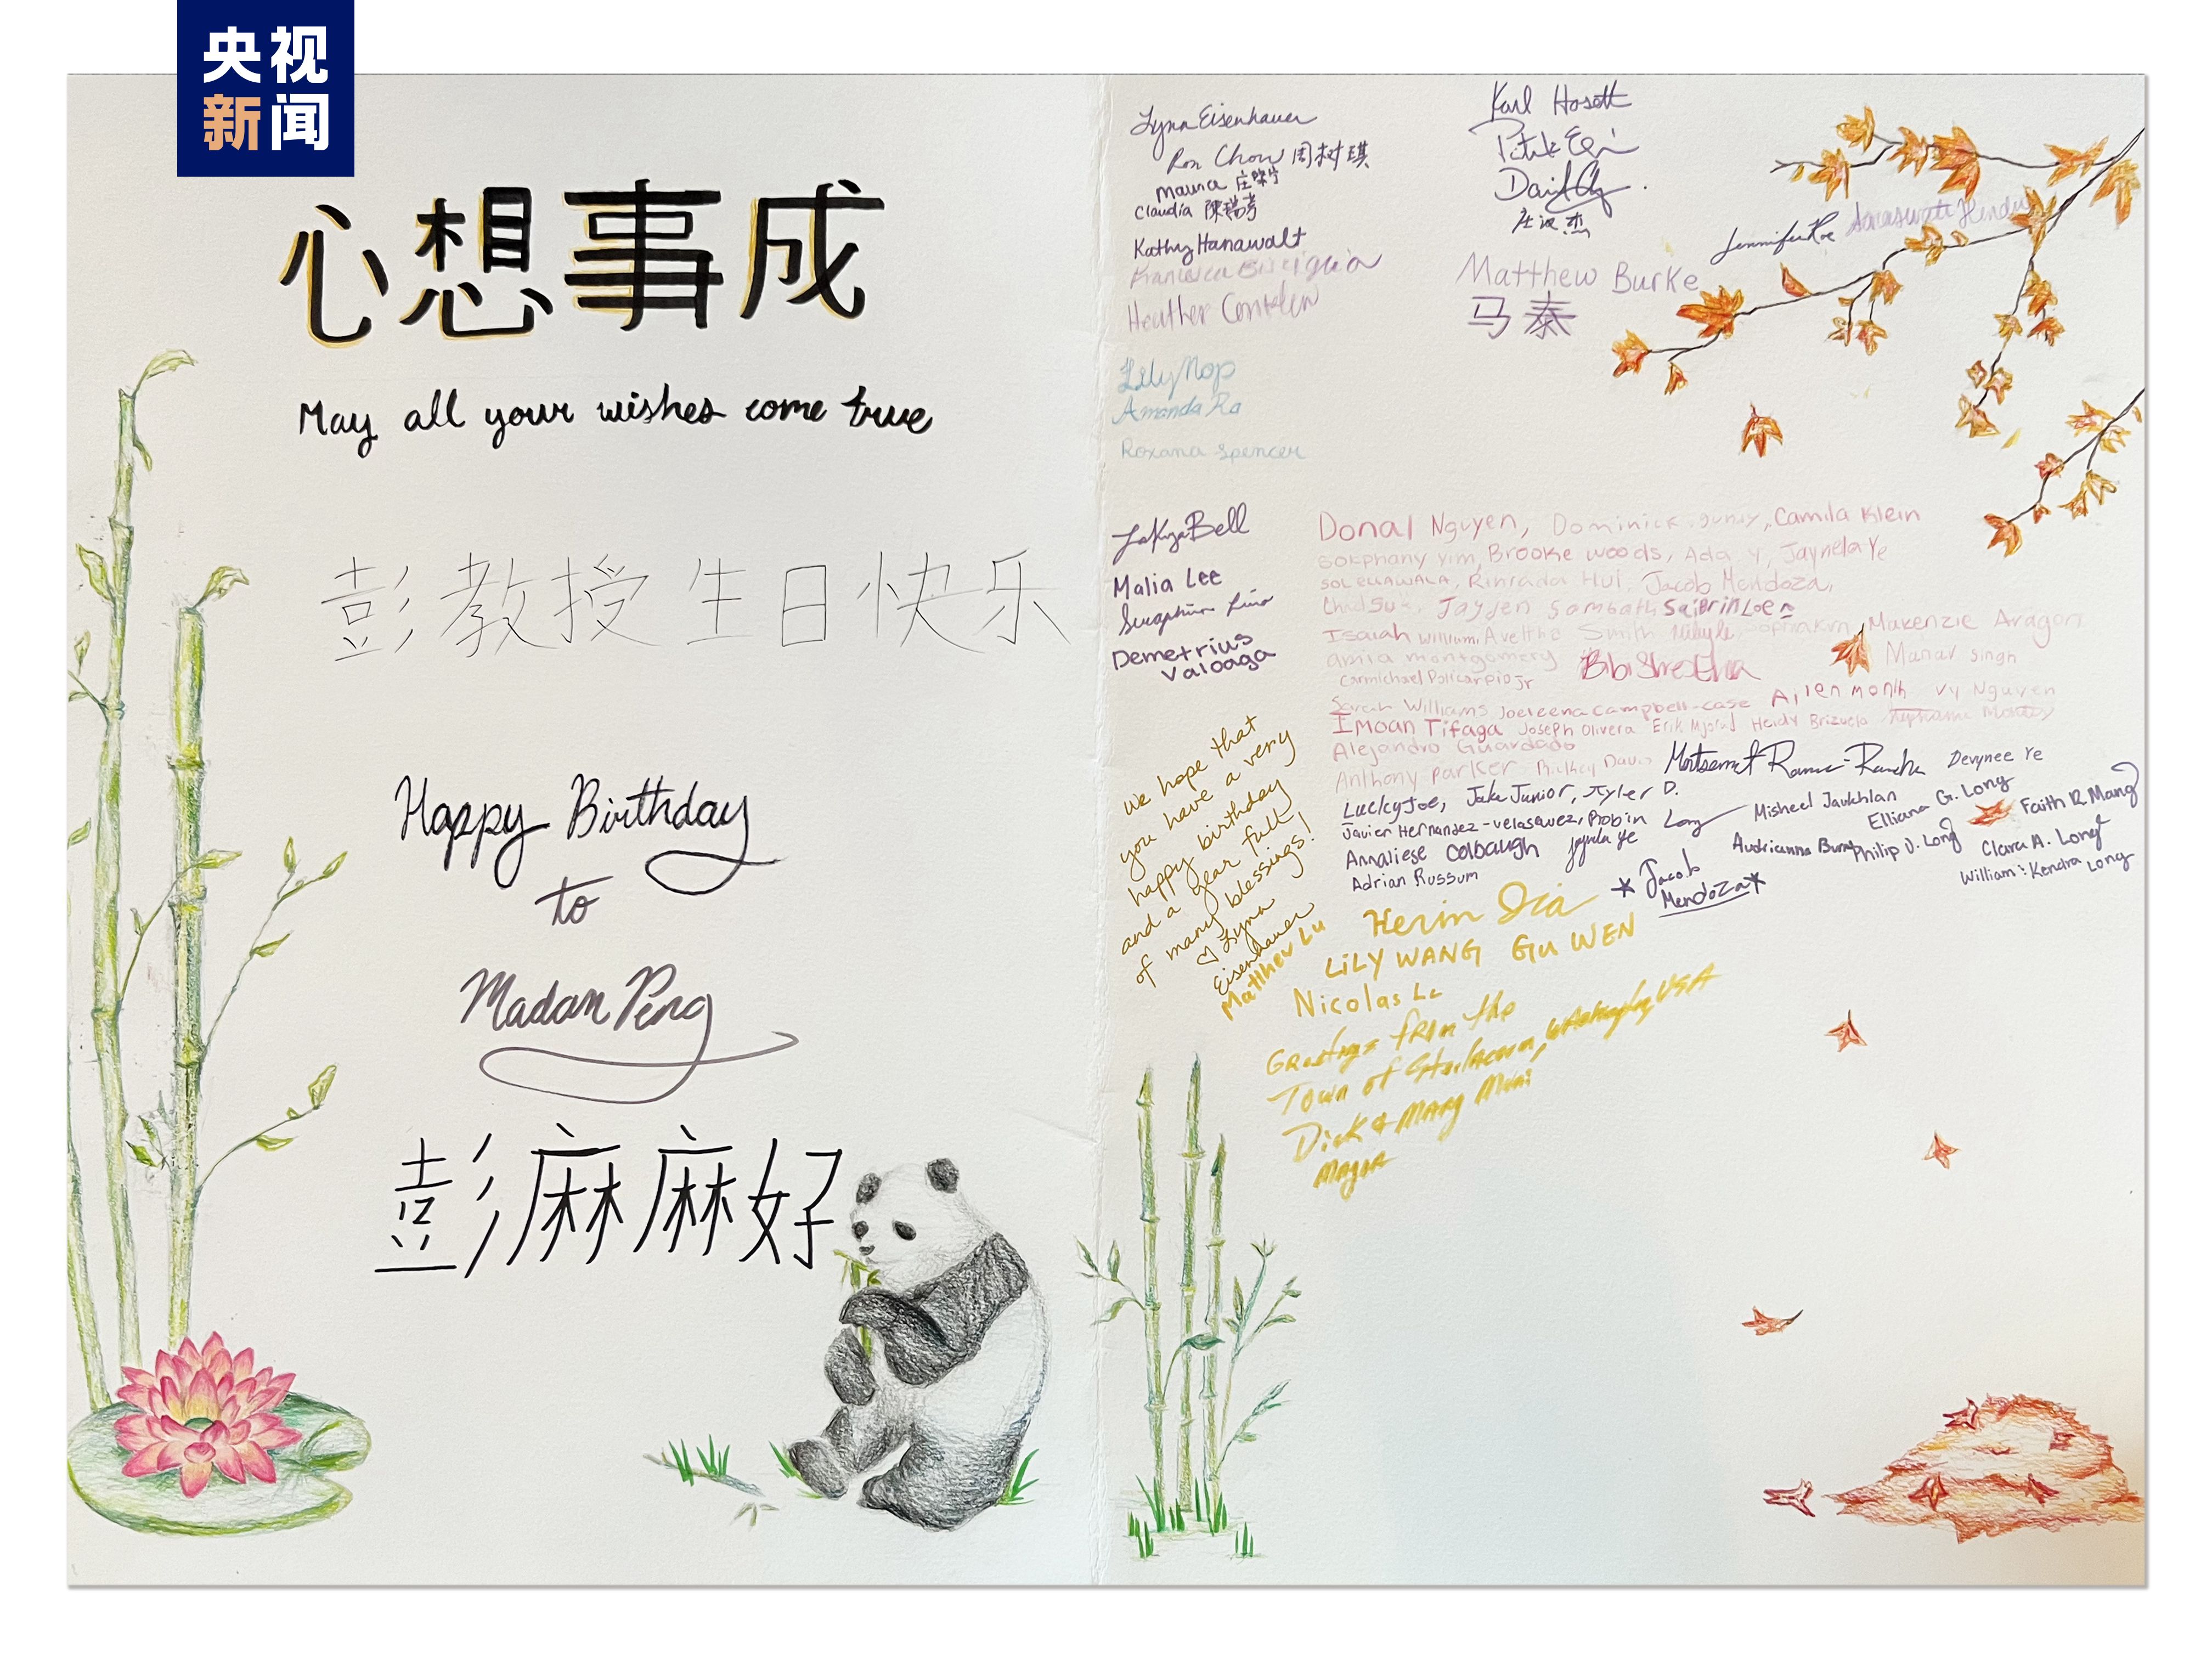 央视
新闻
心想事成
May all your wishes come true
彭教授生日快乐
Happy Birthday
to
Madam Peng
彭麻麻好
Lynn Eisenhauer
Ron Chow 周树琪
Maura 庄
Claudia 陳瑞芳
Kathy Hanawalt
Francesca
Heather
Lily Nop
Amanda Ra
Roxana Spencer
Karl
Matthew Burke
马泰
Jennifer
LaKyza Bell
Malia Lee
Demetrius
Valoaga
Donal Nguyen, Dominick, Camila Klein
Sokphany Yim, Brooke Woods, Ada Y, Jaynela Ye
Rinrada Hui, Jacob Mendoza,
Jayden Sambath
Isaiah William, Smith Makenzie Aragon
amila montgomery Manav Singh
Carmichael Policarpio Jr
Sarah Williams Joeleena Campbell-case Vy Nguyen
Imoan Tifaga Joseph Olivera Heidy Brizuela
Alejandro Guardado
Anthony Parker
Montserrat Devynee Ye
Lucky Joe, Jake Junior, Tyler D.
Javier Hernandez-Velasquez, Robin Long
Misheel Javkhlan Elliana G. Long Faith R. Mang
Annaliese Colbaugh
Audrianna Philip J. Long Clara A. Long
Adrian Russum
William & Kendra Long
*Jacob
Mendoza*
We hope that
you have a very
happy birthday
and a year full
of many blessings!
♡ Lynn
Eisenhauer
Matthew Lu
LILY WANG GU WEN
Nicolas
Greetings from the
Town of Steilacoom, Washington USA
Dick & Mary Muri
Mayor